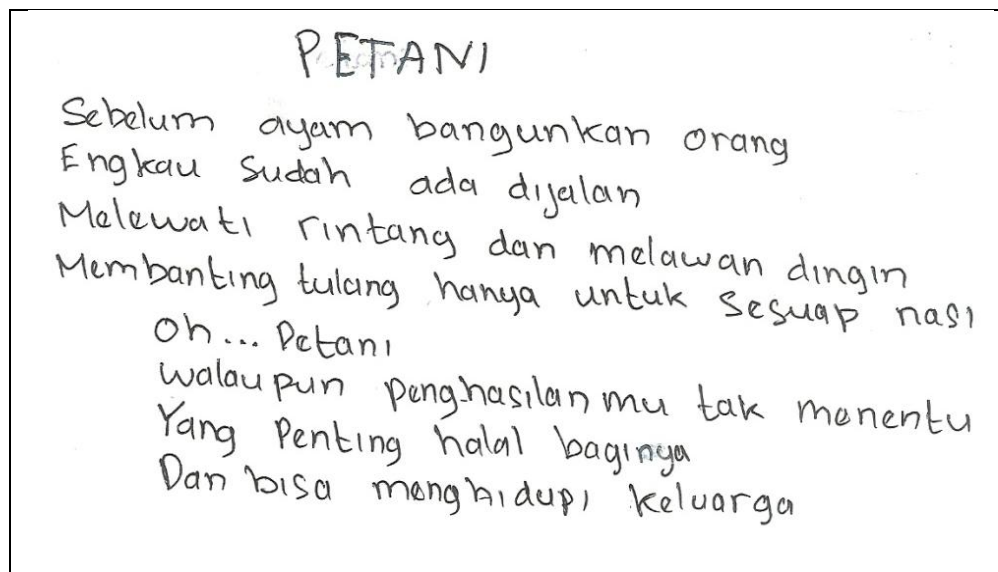 PETANI
Sebelum ayam bangunkan orang
Engkau Sudah ada dijalan
Melewati rintang dan melawan dingin
Membanting tulang hanya untuk Sesuap nasi
Oh... Petani
walaupun penghasilanmu tak menentu
Yang Penting halal baginya
Dan bisa menghidupi keluarga